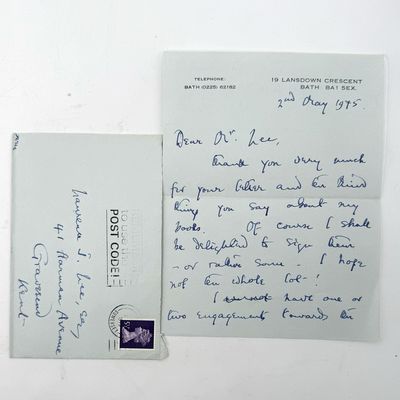 TELEPHONE:
BATH (0225) 62182
19 LANSDOWN CRESCENT
BATH BA1 5EX.
2nd May 1975.
Dear Mr. Lee,
Thank you very much
for your letter and the kind
thing you say about my
books. Of course I shall
be delighted to sign them
- or rather some - I hope
not the whole lot - !
I have one or
two engagements towards the
Laurence J. Lee, Esq,
41 Harman Avenue
Gravesend
Kent
POST CODE!